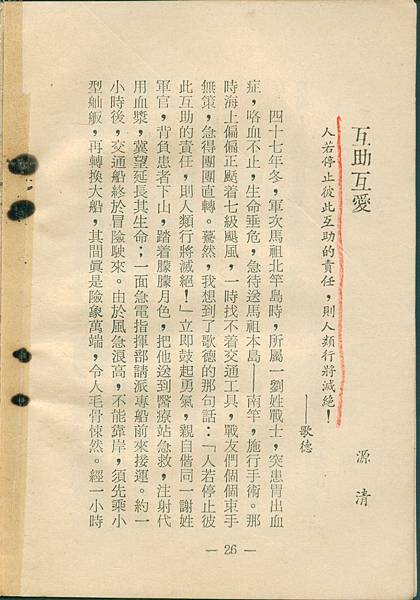 互助互愛
人若停止彼此互助的責任，則人類行將滅絕！
——歌德
源清
四十七年冬，軍次馬祖北竿島時，所屬一劉姓戰士，突患胃出血
症，咯血不止，生命垂危，急待送馬祖本島——南竿，施行手術。那
時海上偏偏正颳着七級颶風，一時找不着交通工具，戰友們個個束手
無策，急得團團直轉。驀然，我想到了歌德的那句話：「人若停止彼
此互助的責任，則人類行將滅絕！」立即鼓起勇氣，親自偕同一謝姓
軍官，背負患者下山，踏着朦朦月色，把他送到醫療站急救，注射代
用血漿，冀望延長其生命；一面急電指揮部請派專船前來接運。約一
小時後，交通船終於冒險駛來。由於風急浪高，不能靠岸，須先乘小
型舢舨，再轉換大船，其間眞是險象萬端，令人毛骨悚然。經一小時
— 26 —